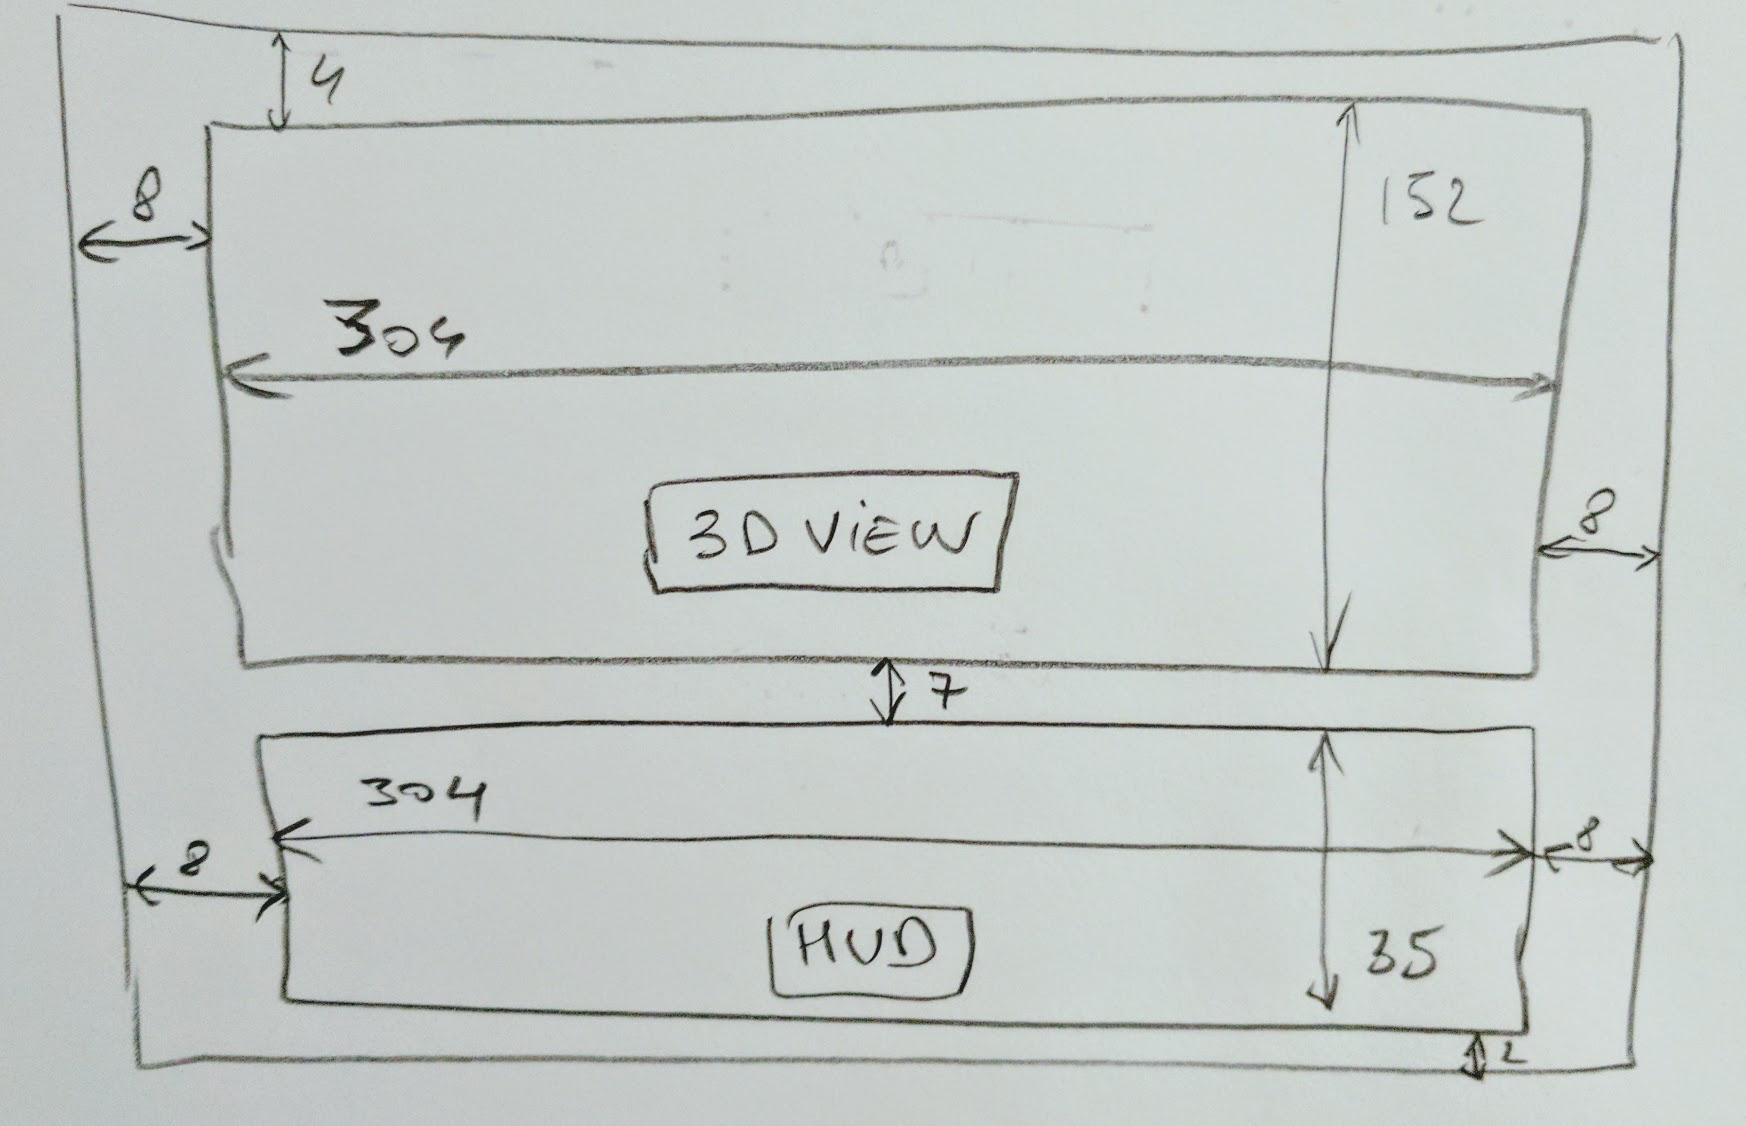 4
8
152
304
3D ViEW
8
7
304
8
8
HUD
35
2